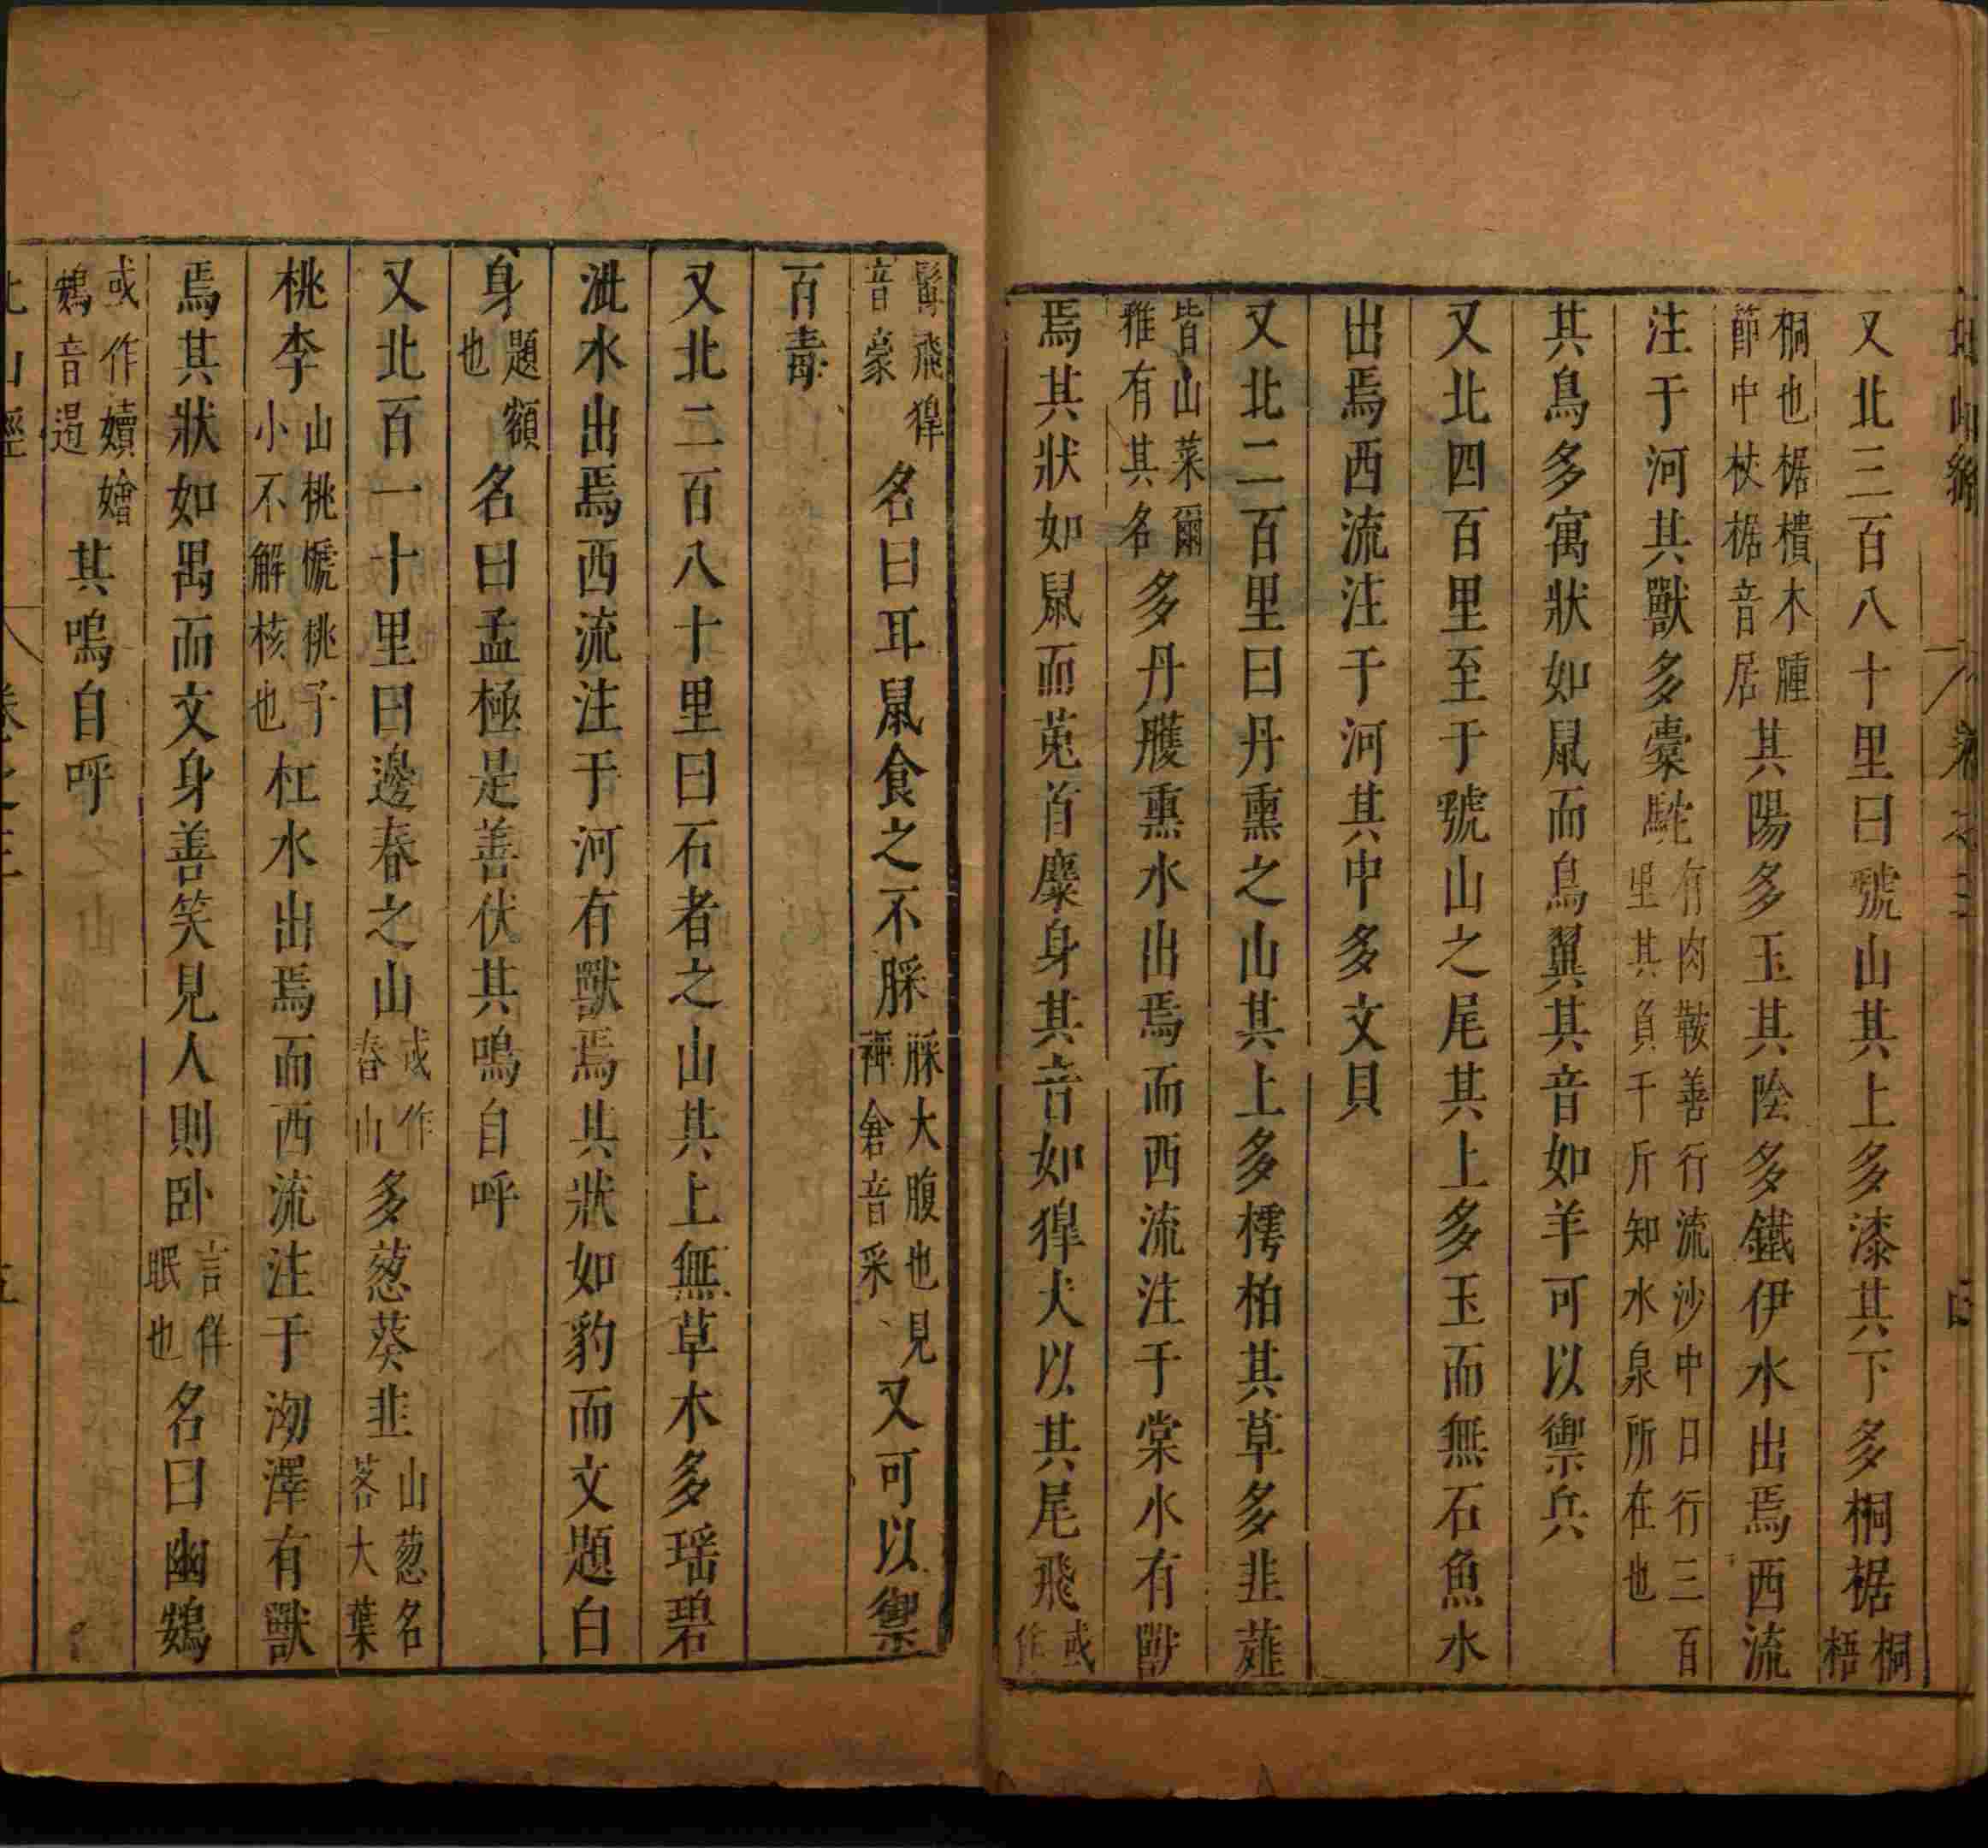 又北三百八十里曰號山其上多漆其下多桐椐桐梧
桐也椐樻木腫節中杖椐音居其陽多玉其陰多鐵伊水出焉西流
注于河其獸多橐駝有肉鞍善行流沙中日行三百里其負千斤知水泉所在也
其鳥多寓狀如鼠而鳥翼其音如羊可以禦兵
又北四百里至于號山之尾其上多玉而無石魚水
出焉西流注于河其中多文貝
又北二百里曰丹熏之山其上多樗柏其草多韭薤
皆山菜爾雅有其名多丹雘熏水出焉而西流注于棠水有獸
焉其狀如鼠而菟首麋身其音如獆犬以其尾飛或作
髯飛獆音豪名曰耳鼠食之不䐆䐆大腹也見裨倉音采又可以禦
百毒
又北二百八十里曰石者之山其上無草木多瑶碧
泚水出焉西流注于河有獸焉其狀如豹而文題白
身題額也名曰孟極是善伏其鳴自呼
又北百一十里曰邊春之山或作春山多葱葵韭山葱名茖大葉
桃李山桃榹桃子小不解核也杠水出焉而西流注于泑澤有獸
焉其狀如禺而文身善笑見人則卧言佯眠也名曰幽鴳
或作嬻嬒鴳音遏其鳴自呼
北山經 卷之三 五